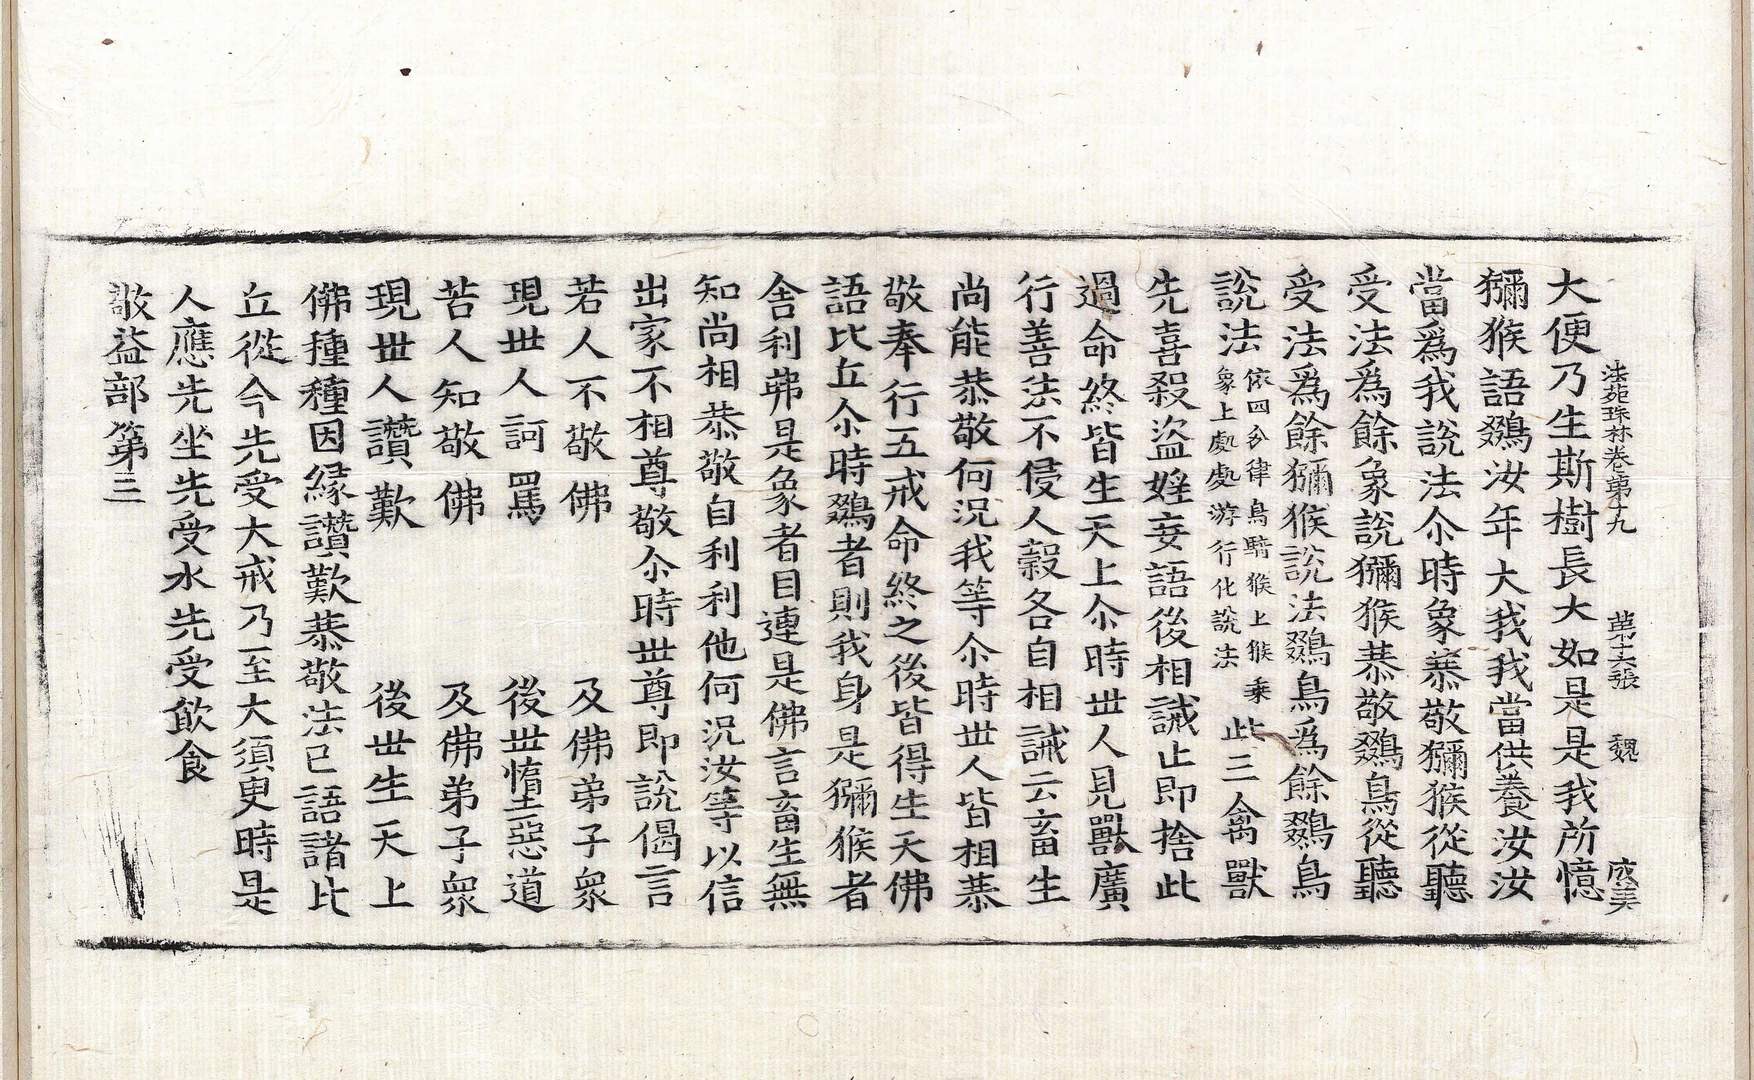 法苑珠林卷第十九 第十六張 魏 成美
大便乃生斯樹長大如是是我所憶
獼猴語鵽汝年大我我當供養汝汝
當爲我說法尒時象㳟敬獼猴從聽
受法爲餘象說獼猴恭敬鵽鳥從聽
受法爲餘獼猴說法鵽鳥爲餘鵽鳥
說法依四分律鳥騎猴上猴乘象上處處游行化說法此三禽獸
先喜殺盜婬妄語後相誡止即捨此
過命終皆生天上尒時世人見獸廣
行善法不侵人穀各自相誡云畜生
尚能恭敬何況我等尒時世人皆相恭
敬奉行五戒命終之後皆得生天佛
語比丘尒時鵽者則我身是獼猴者
舍利弗是象者目連是佛言畜生無
知尚相恭敬自利利他何況汝等以信
出家不相尊敬尒時世尊即說偈言
若人不敬佛 及佛弟子衆
現世人訶罵 後世墮惡道
若人知敬佛 及佛弟子衆
現世人讚歎 後世生天上
佛種種因緣讚歎恭敬法已語諸比
丘從今先受大戒乃至大須臾時是
人應先坐先受水先受飲食
敬益部第三